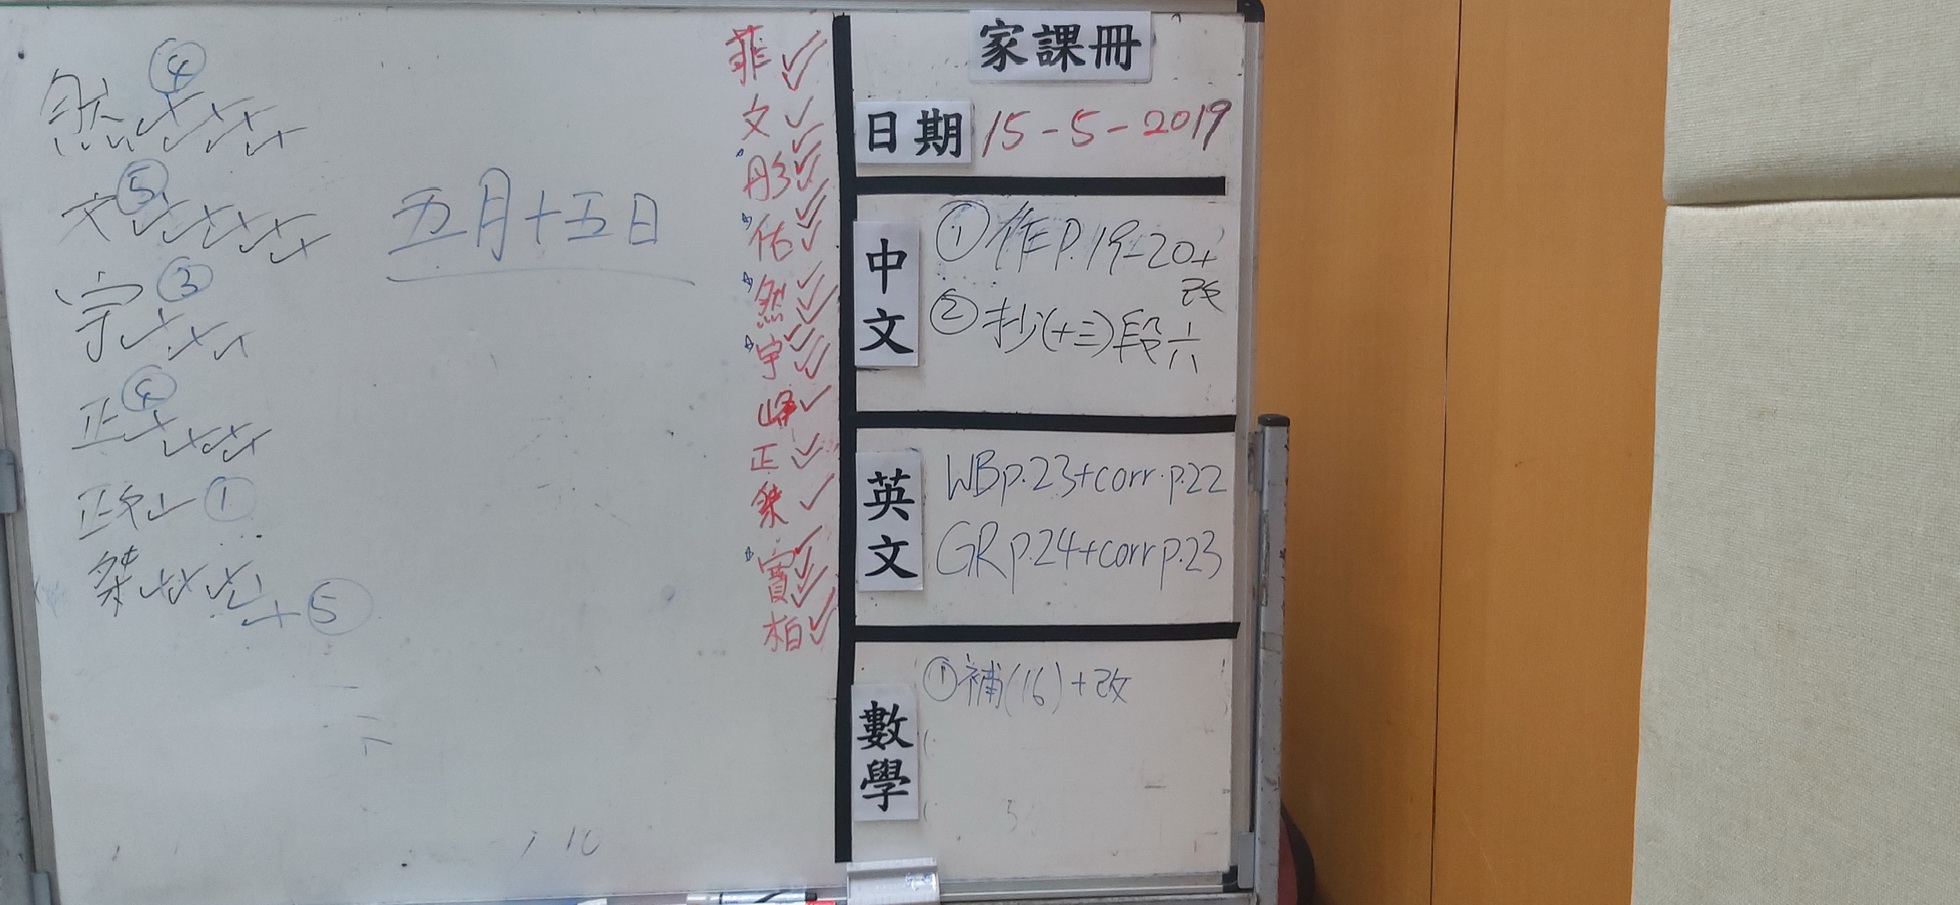 然 ④
文 ⑤
宇 ③
正 ④
山 ①
傑 + ⑤
五月十五日
菲
文
彤
佑
然
宇
峰
正
傑
寶
柏
家課冊
日期 15-5-2019
中文
① 作P.19-20+改
② 抄(十三)段六
英文
WBp.23+corr.p.22
GRp.24+corrp.23
數學
① 補(16)+改